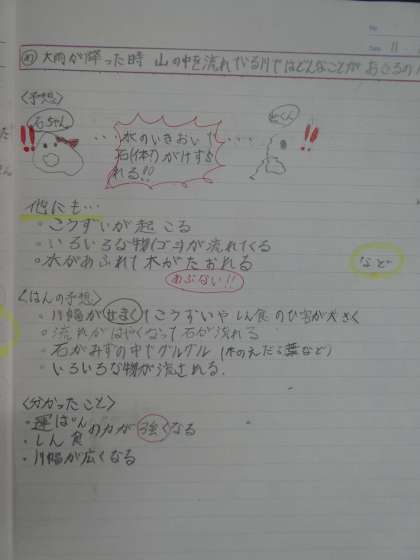 No.
Date 11
め 大雨が降った時 山の中を流れている川ではどんなことが おこるの
〈予想〉
石ちゃん
水のいきおいで
石(体)がけずら
れる!!
水くん
!!
!!
他にも…
・こうずいが起こる
・いろいろな物(ゴミ)が流れてくる
・水があふれて木がたおれる
など
あぶない!!
〈はんの予想〉
・川幅がせまくてこうずいやしん食のひ害が大きく
・流れがはやくなって石が流れる
・石がみずの中でグルグル(木のえだら葉など)
・いろいろな物が流される.
〈分かったこと〉
・運ぱん
・しん食
の力が強くなる
・川幅が広くなる